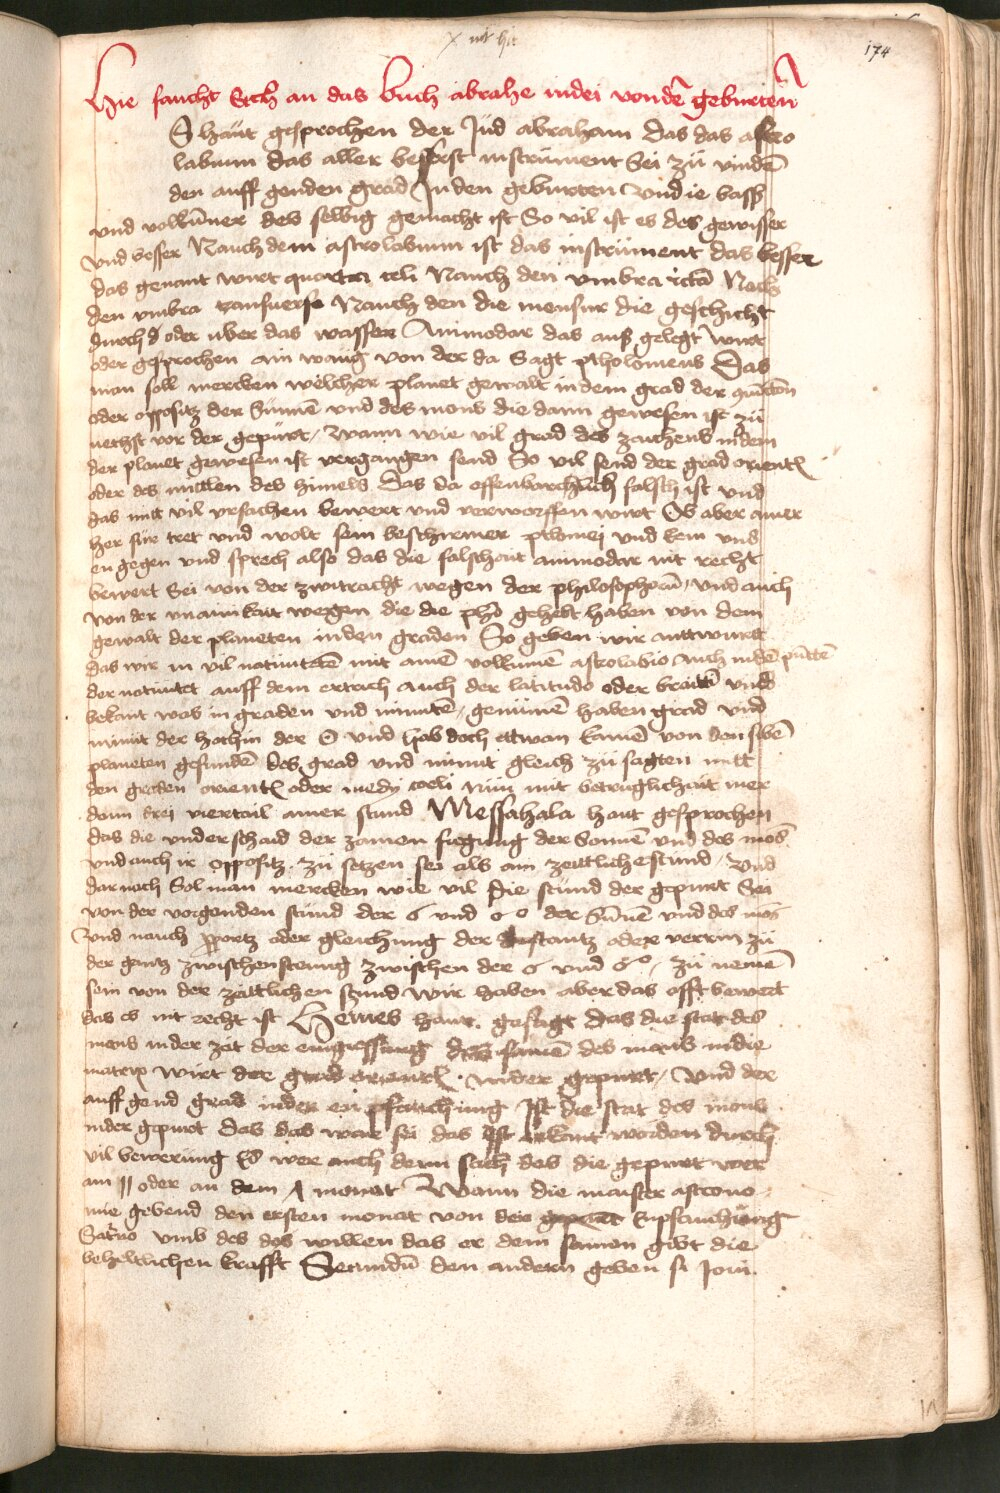 x nit hie
174
Hie faucht Sich an das buch abrahe iudei von dē geburten
S haut gesprochen der Jüd abraham das das astro
labium das aller besserst instrument Sei zü vinden
den auff genden grad In den geburten Und ie bass
und volkūner des selbig gemacht ist So vil ist es des gewisser
Und besser Nauch dem astrolabium ist das instrument das besser
das genant wirt quarta celi Nauch den vmbra recta Nach
den vmbra transuerse Nauch den die mensur die geschicht
durch d oder uber das wasser Animodar das auß gelegt wirt
oder gesprochen ain waug von der da Sagt ptholomeus Das
man soll mercken wölcher planet gewalt in dem grad der
oder oppositz der Sunnē und des mons die dann gewesen ist zü
nechst vor der gepürt / Wann wie vil grad des zaichens in dem
der planet gewesen ist vergangen send So vil send der grad orient
oder des mittlen des himels Das da offenbarchlich falsch ist und
das mitt vil vrsachen bewert und verworffen wirt Ob aber ainer
her für tret und wolt sein beschirmer ptlomei und kem und
en gegen und sprech also das die falschait animodar nit recht
bewert Sei von der zwitracht wegen der philosophorū / und auch
von der vnainikait wegen die die pho gehebt haben von dem
gewalt der planeten in den graden So geben wir anttwurtt
das wir in vil natiuitetē mit ainē vollkumē astrolabio auch in dē
der natiuitet auff dem ertrich auch der latitudo oder braitti und
bekant was in graden und minutē / genumē haben grad und
minut der hochin der ☉ und hab doch ettwan kainē von den sibē
planeten gefundē des grad und minut gleich zü sagten mitt
den graden orient oder medij coeli nün mit betruglichait mer
dann drei viertail ainer stund Messahala haut gesprochen
das die underschaid der zamen fiegung der Sonnen und des mōs
und auch ir oppositz zü setzen sei als ain zeittliche stund / Und
dar nach Sol man mercken wie vil die stünd der gepurt Sei
von der vorgenden stünd der ☌ und ☍ der Sūnē und des mōs
Und nauch portz oder gleichung der distantz oder verrin zü
der gantz zwischen steung zwischen der ☌ und ☍ / zü nemē
sein von der zeittlichen stund wir haben aber das offt bewert
das es nit recht ist Hermes haut gesagt das die stat des
mons in der zeit der eingiessung des samē des mans in die
matrix wirt der grad orient in der gepurt / Und der
auff gend grad in der enpfauchung Ist die stat des mons
in der gepurt das das war sei das ist bekant worden durch
vil bewerung Es wer auch denn sach das die gepurt wer
am 11 oder an dem Λ monat Wann die maister astrono
mie gebend den ersten monat von der enpfauchung
Saturno vmb des des willen das er dem samen gibt die
beheltlichen krafft Secundū den andern geben si Joui